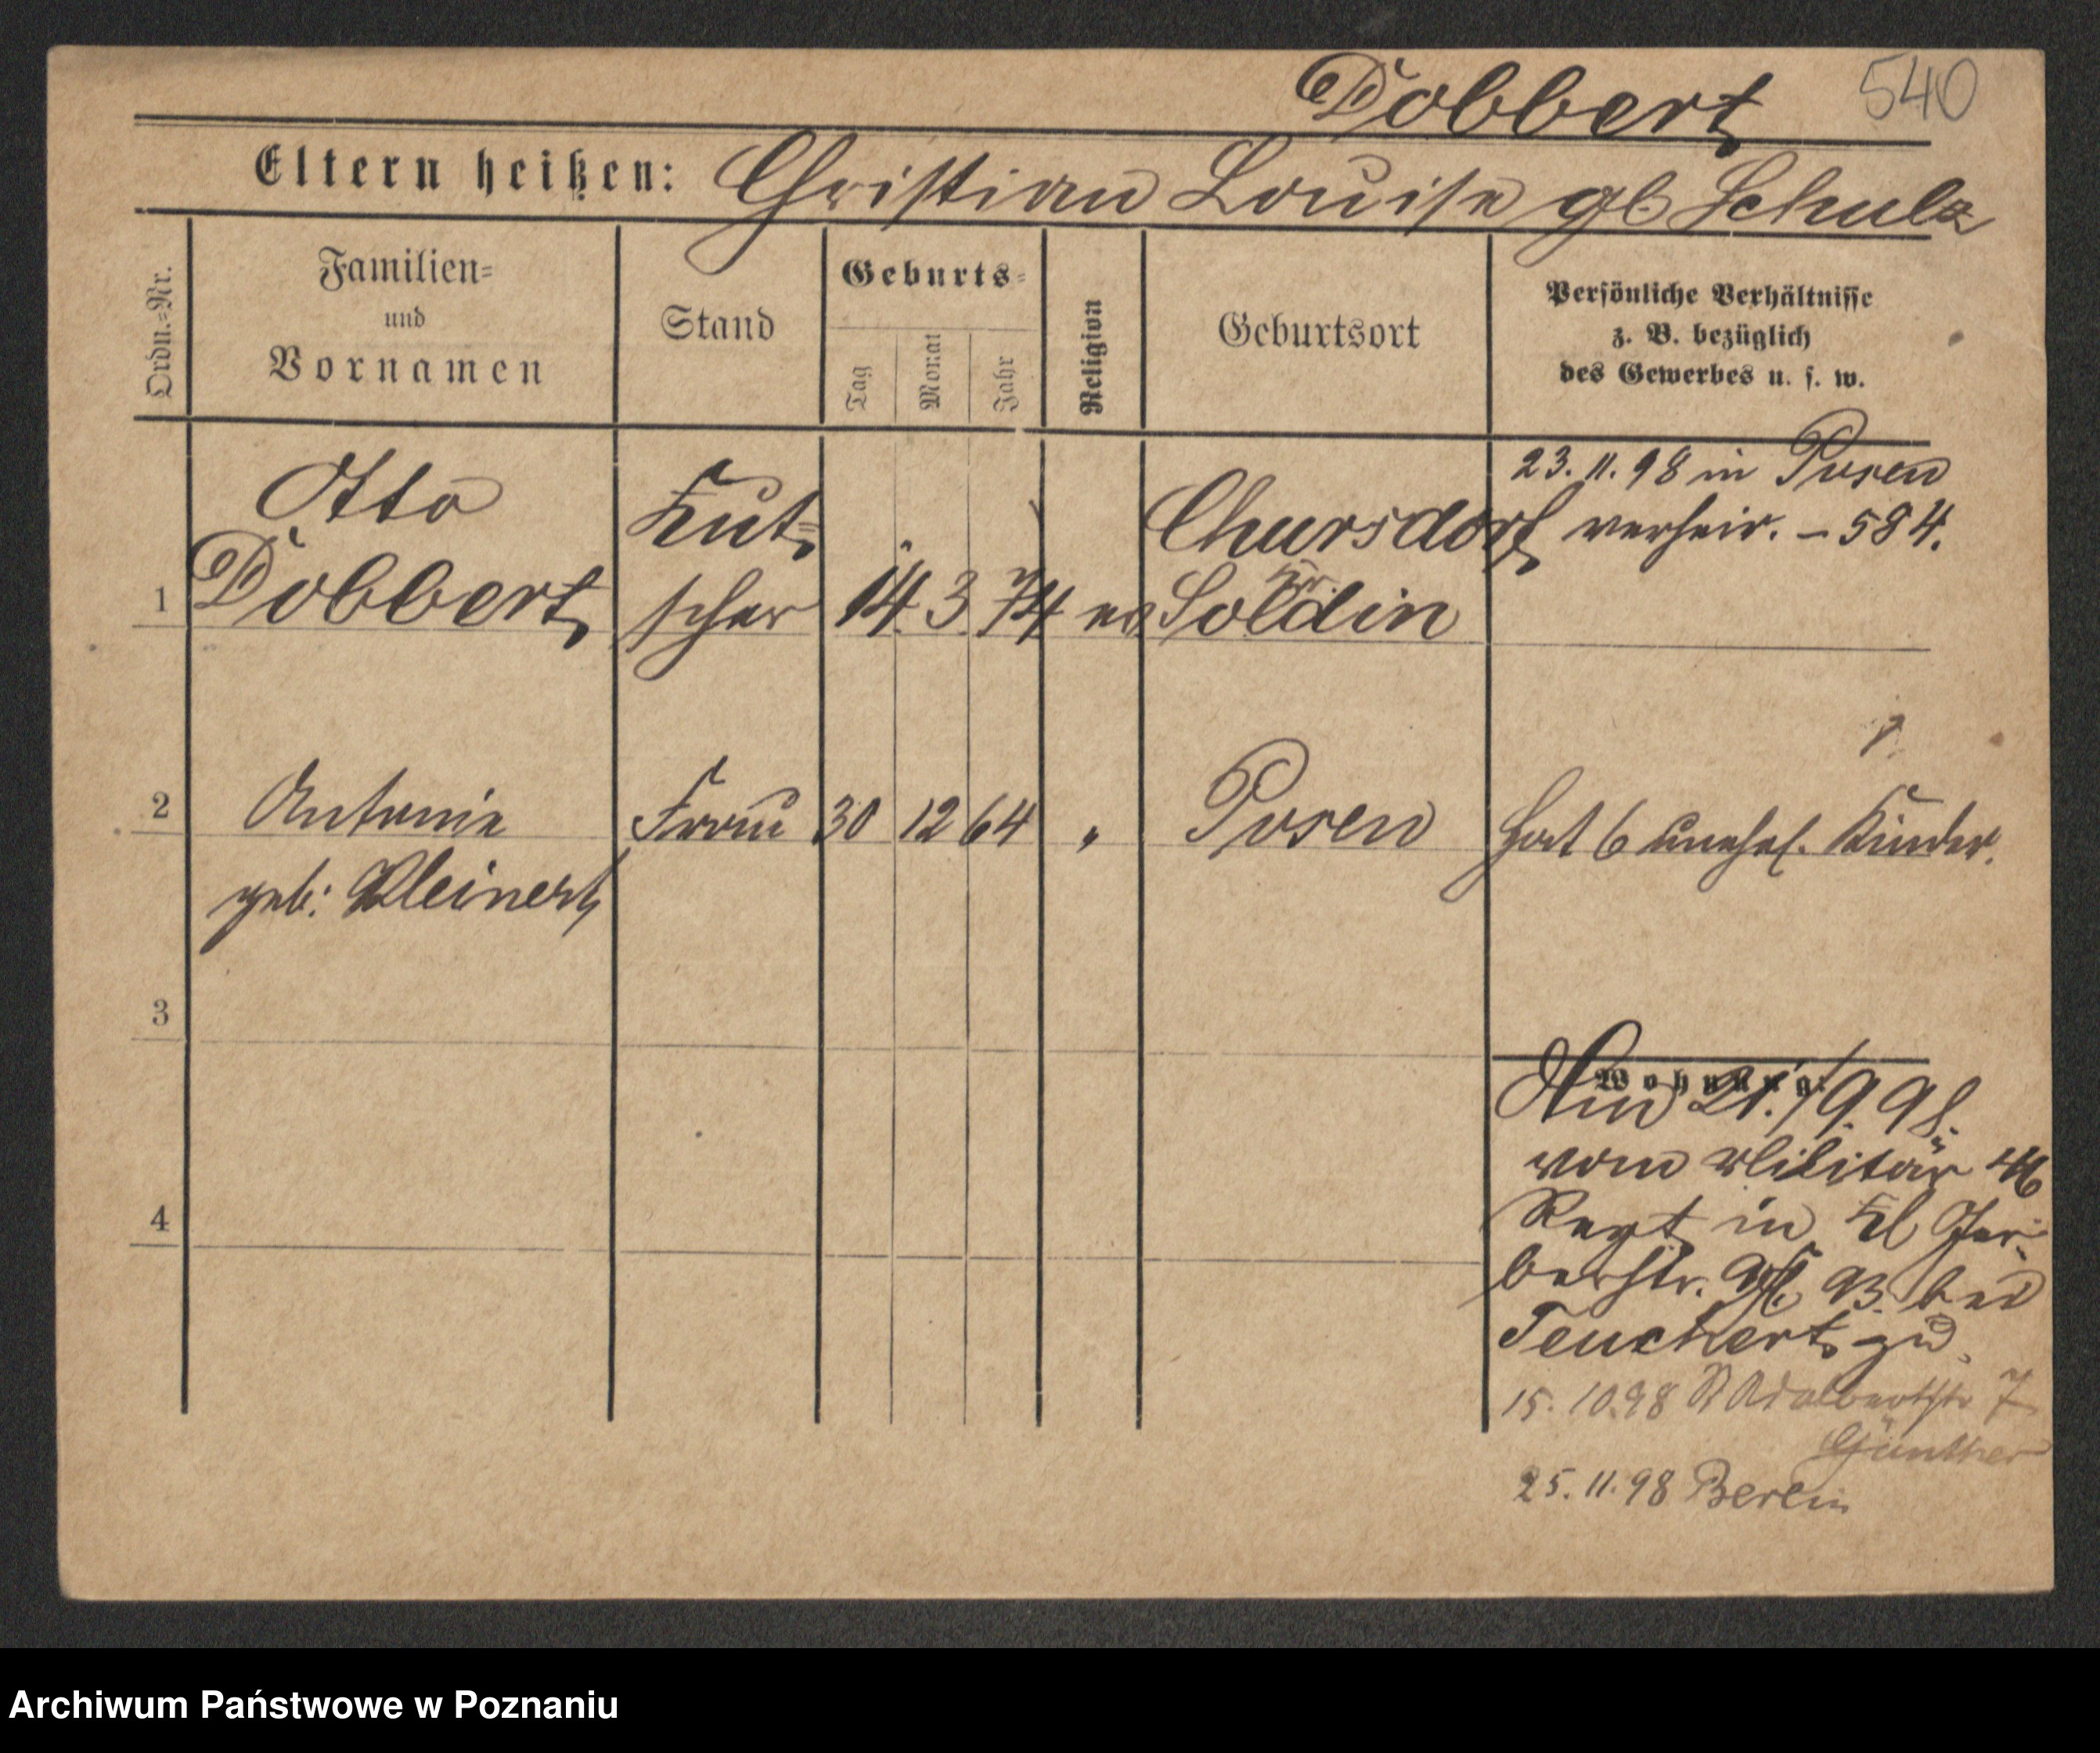 Dobbert 540
Eltern heißen: Christian Louise gb Schulz
Ordn.=Nr.
Familien=
und
Vornamen
Stand
Geburts=
Tag
Monat
Jahr
Religion
Geburtsort
Persönliche Verhältnisse
z. B. bezüglich
des Gewerbes u. s. w.
1
Otto
Dobbert
Kut=
scher
14. 3. 74
ev
Chursdorf
Kr
Soldin
23. 11. 98 in Posen
verheir. – 584.
2
Antonie
geb: Kleinert
Frau
30 12 64
"
Posen
hat 6 unehel. Kinder.
3
4
Wohnung:
21./9. 98.
vom Militär 46
Regt in Kl Ger-
berstr. 93. bei
Teuchert zu.
15. 10.98 St Adalbertstr 7
Günther
25. 11. 98 Berlin
Archiwum Państwowe w Poznaniu